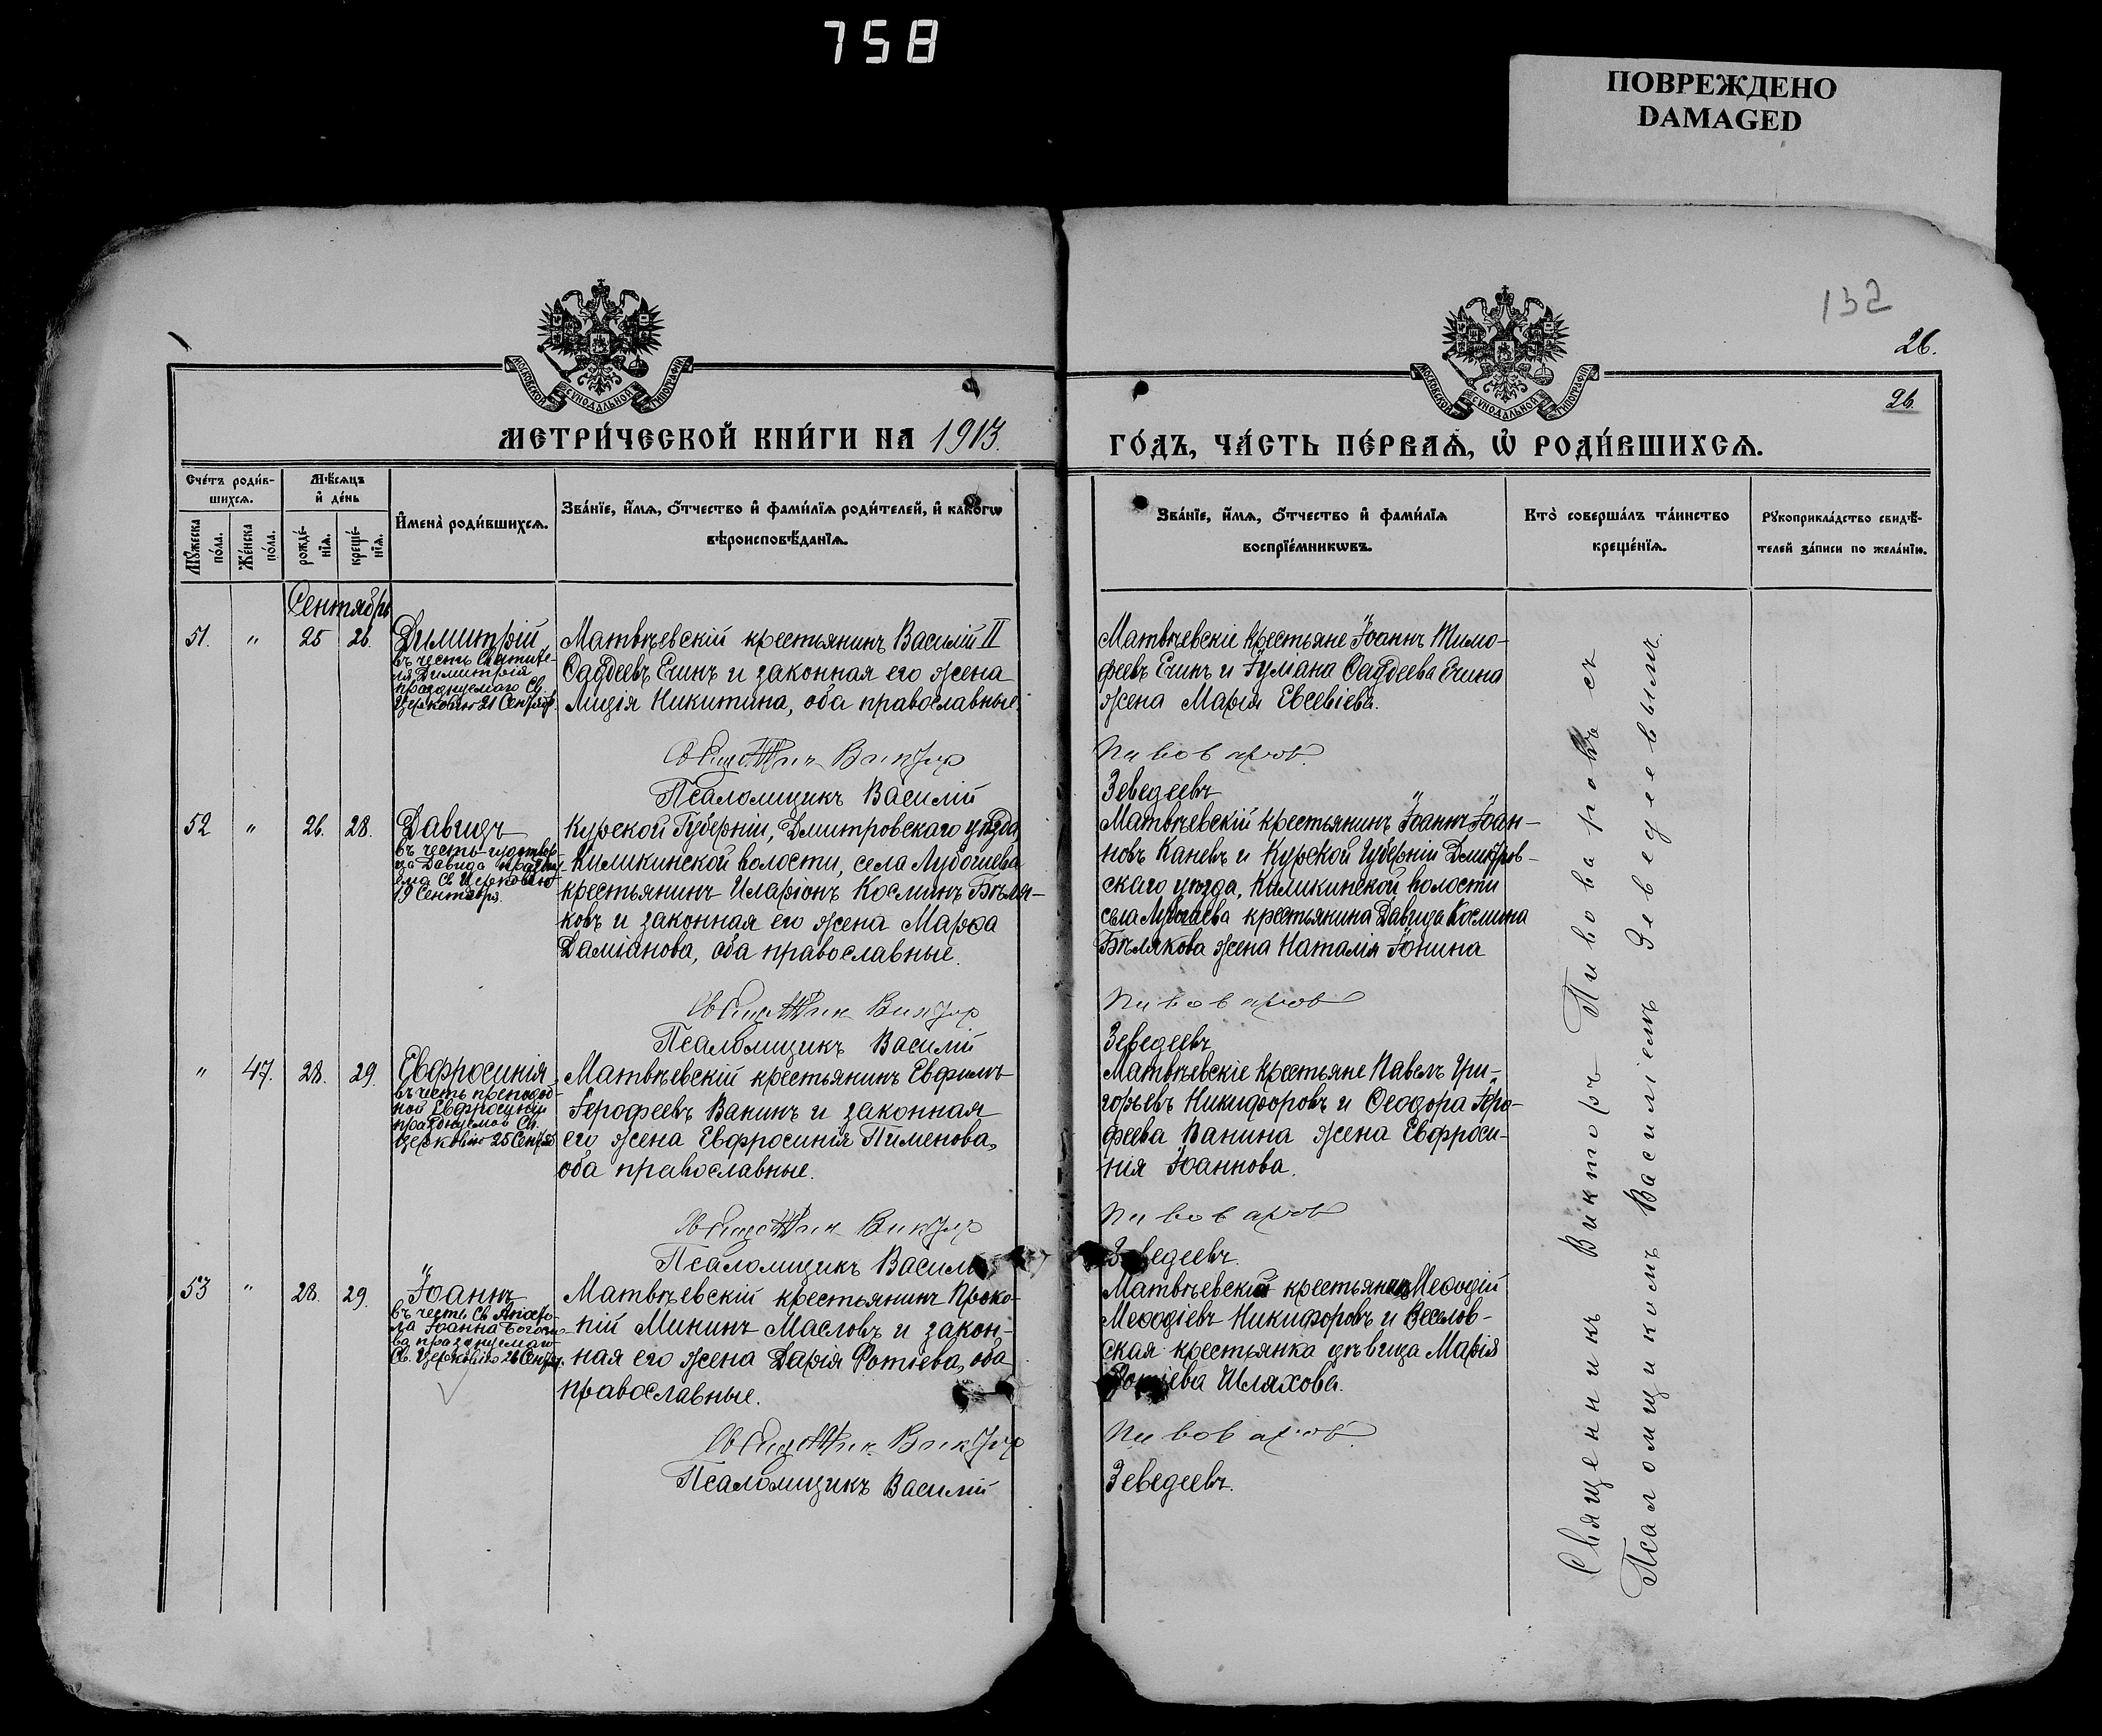 758
ПОВРЕЖДЕНО
DAMAGED
132
26.
26.
МОСКОВСКОЙ СУНОДАЛЬНОЙ ТИПОГРАФІИ
МОСКОВСКОЙ СУНОДАЛЬНОЙ ТИПОГРАФІИ
МЕТРИ́ЧЕСКОЙ КНИ́ГИ НА 1913.
ГО́ДЪ, ЧА́СТЬ ПЕ́РВАѦ, Ѡ҆ РОДИ́ВШИХСѦ.
Сче́тъ роди́в-
шихсѧ.
Мѣ́сѧцъ
и҆ де́нь
Мꙋ́жеска
по́ла.
Же́нска
по́ла.
рожде́-
нїѧ.
креще́-
нїѧ.
И҆мена̀ роди́вшихсѧ.
Зва́нїе, и҆́мѧ, ѻ҆́тчество и҆ фами́лїѧ роди́телей, и҆ како́гѡ
вѣроисповѣ́данїѧ.
Зва́нїе, и҆́мѧ, ѻ҆́тчество и҆ фами́лїѧ
воспрїе́мникѡвъ.
Кто̀ соверша́лъ та́инство
креще́нїѧ.
Рꙋкоприкла́дство свидѣ́-
телей за́писи по жела́нїю.
Сентябрь
51. " 25 26. Димитрій
въ честь Святите-
ля Димитрія
празднуемаго Св.
Церковію 21 Сентябр.
Матвѣевскій крестьянинъ Василій II
Ѳаддеевъ Ечинъ и законная его жена
Лидія Никитина, оба православные.
Священникъ Викторъ
Псаломщикъ Василій
Матвѣевскіе крестьяне Іоаннъ Тимо-
феевъ Ечинъ и Іуліана Ѳаддеева Ечина
жена Марія Евсевіева.
Пивоваров.
Зеведеевъ
52 " 26. 28. Давидъ
въ честь
Давида
Св Церковью
19 Сентября.
Курской Губерніи, Дмитровскаго уѣзда
Киликинской волости, села Лубошева
крестьянинъ Иларіонъ Косминъ Бѣля-
ковъ и законная его жена Марѳа
Даміанова, оба православные.
Священникъ Викторъ
Псаломщикъ Василій
Матвѣевскій крестьянинъ Іоаннъ Іоан-
новъ Каневъ и Курской Губерніи Дмитров-
скаго уѣзда, Киликинской волости
села Лубошева крестьянина Давида Космина
Бѣлякова жена Наталія Іонина
Пивоваров
Зеведеевъ
" 47. 28. 29. Евфросинія
въ честь преподоб-
ной Евфросиніи
празднуемой Св.
Церковію 25 Сентяб.
Матвѣевскій крестьянинъ Евфимъ
Іерофеевъ Ванинъ и законная
его жена Евфросинія Пименова,
оба православные.
Священникъ Викторъ
Псаломщикъ Василій
Матвѣевскіе крестьяне Павелъ Гри-
горьевъ Никифоровъ и Ѳеодора Іеро-
феева Ванина жена Евфроси-
нія Іоаннова.
Пивоваров
Зеведеевъ.
53 " 28. 29. Іоаннъ
въ честь Св Апосто-
ла Іоанна Богосло-
ва празднуемаго
Св. Церковію 26 Сентяр.
Матвѣевскій крестьянинъ Проко-
пій Мининъ Масловъ и закон-
ная его жена Дарія Фотіева, оба
православные.
Священникъ Викторъ
Псаломщикъ Василій
Матвѣевскій крестьянинъ Меѳодій
Меѳодіевъ Никифоровъ и Веселов-
ская крестьянка дѣвица Марія
Фотіева Шляхова.
Пивоваров.
Зеведеевъ.
Священникъ Викторъ Пивоваровъ съ
Псаломщикомъ Василіемъ Зеведеевымъ.